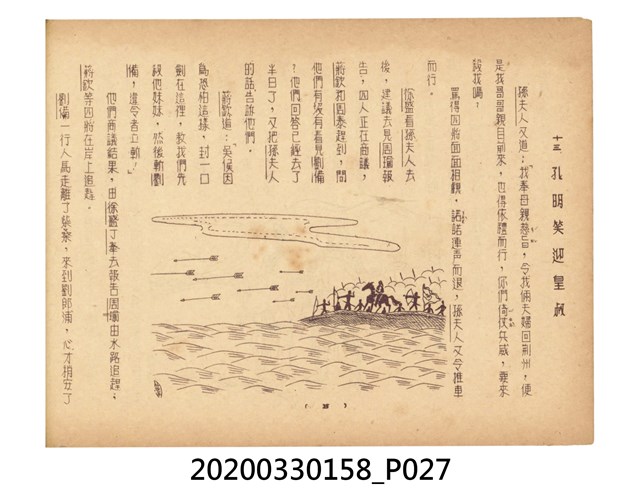 十三 孔明笑迎皇叔
孫夫人又道：我奉母親慈旨，令我倆夫婦回荊州，便
是我哥哥親自前來，也得依禮而行，你們倚仗兵威，要來
殺我嗎？
罵得四將面面相覷，諾諾連聲而退，孫夫人又令推車
而行。
你盛看孫夫人去
後，建議去見周瑜報
告，四人正在商議，
蔣欽和周泰趕到，問
他們有沒有看見劉備
？他們回答已經去了
半日了，又把孫夫人
的話告訴他們。
蔣欽道：吳侯因
爲恐怕這樣，封一口
劍在這裡，教我們先
殺他妹妹，然後斬劉
備，違令者立斬！
他們商議結果，由徐盛丁奉去報告周瑜由水路追趕；
蔣欽等四將在岸上追趕。
劉備一行人馬走離了柴桑，來到劉郎浦，心才稍安了
20200330158_P027